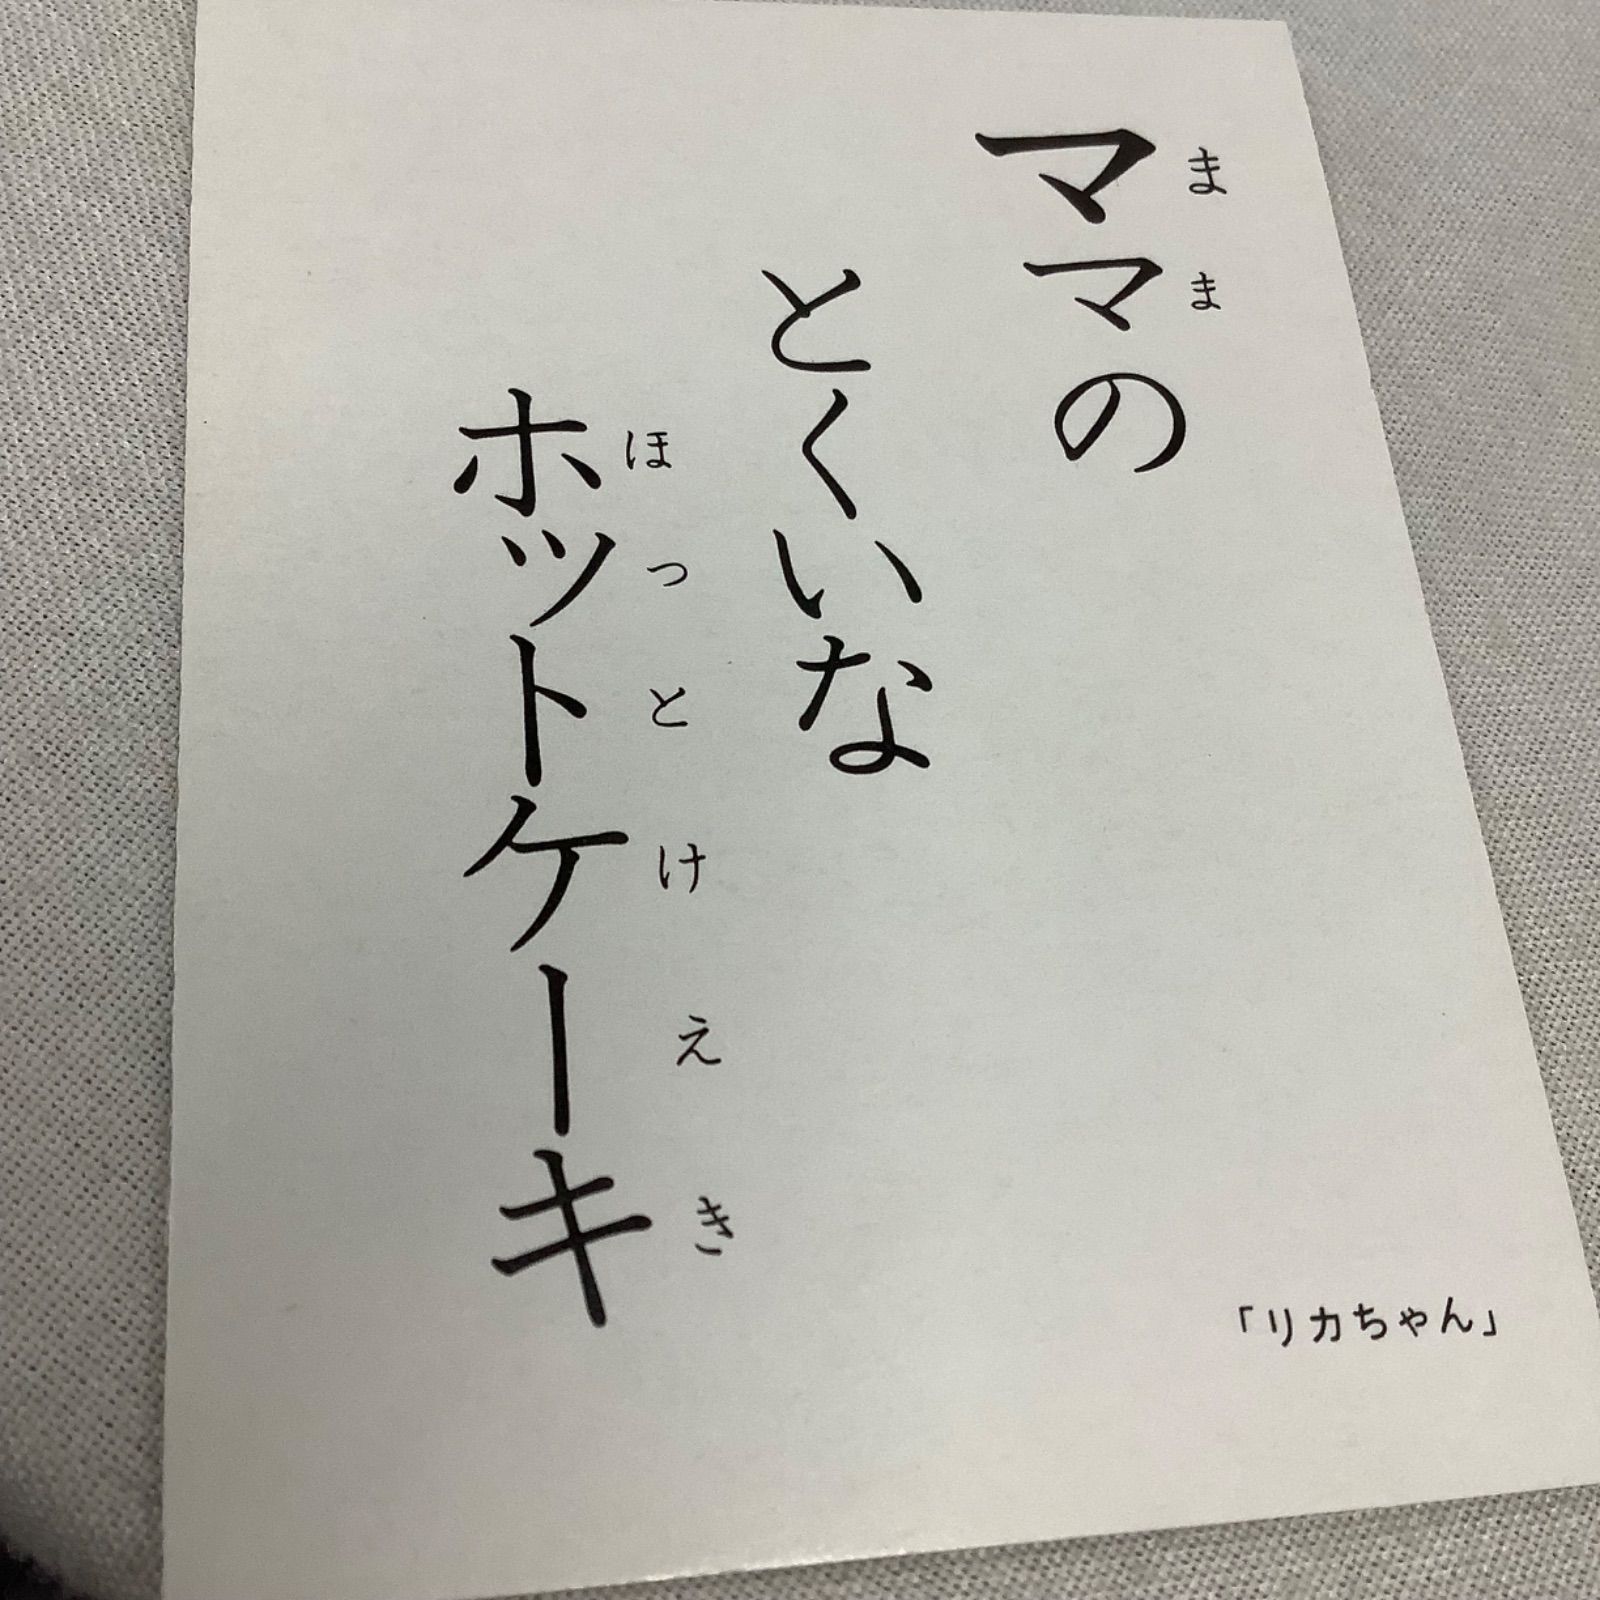 ママの
まま
とくいな
ホットケーキ
ほっとけえき
「リカちゃん」